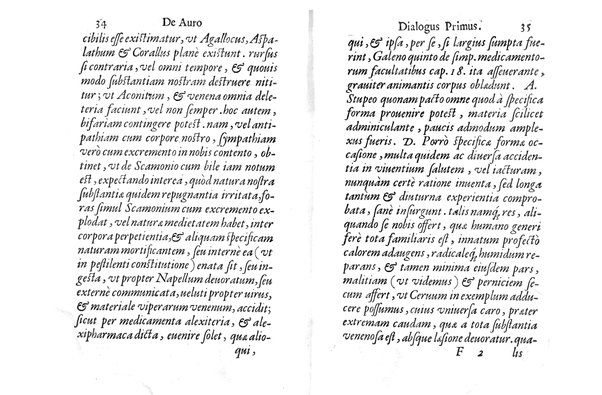 34 De Auro
cibilis esse existimatur, vt Agallocus, Aspa-
lathum & Corallus planè existunt. rursus
si contraria, vel omni tempore, & quouis
modo substantiam nostram destruere niti-
tur; vt Aconitum, & venena omnia dele-
teria faciunt, vel non semper. hoc autem,
bifariam contingere potest. nam, vel anti-
pathiam cum corpore nostro, sympathiam
verò cum excremento in nobis contento, ob-
tinet, vt de Scamonio cum bile iam notum
est, expectando interea, quòd natura nostra
substantiæ quidem repugnantia irritata, fo-
ras simul Scamonium cum excremento ex-
plodat, vel naturæ medietatem habet, inter
corpora perpetientia, & aliquam specificam
naturam mortificantem, seu internè ea (vt
in pestilenti constitutione) enata sit, seu in-
gesta, vt propter Napellum deuoratum, seu
externè communicata, veluti propter virus,
& materiale viperarum venenum, accidit;
sicut per medicamenta alexiteria, & ale-
xipharmaca dicta, euenire solet, quæ alio-
qui,
Dialogus Primus. 35
qui, & ipsa, per se, si largius sumpta fue-
rint, Galeno quinto de simp. medicamento-
rum facultatibus cap. 18. ita asseuerante,
grauiter animantis corpus oblædunt. A.
Stupeo quonam pacto omne quod à specifica
forma prouenire potest, materia scilicet
adminiculante, paucis admodum amplex-
xus fueris. D. Porrò specificæ formæ oc-
casione, multa quidem ac diuersa acciden-
tia in viuentium salutem, vel iacturam,
nunquàm certè ratione inuenta, sed longa
tantum & diuturna experientia compro-
bata, sanè insurgunt. talis namq́; res, ali-
quando se nobis offert, quæ humano generi
ferè tota familiaris est, innatum profectò
calorem adaugens, radicaleq́; humidum re-
parans, & tamen minima eiusdem pars,
malitiam (vt videmus) & perniciem se-
cum affert, vt Ceruum in exemplum addu-
cere possumus, cuius vniuersa caro, præter
extremam caudam, quæ a tota substantia
venenosa est, absque læsione deuoratur. qua-
F 2 lis